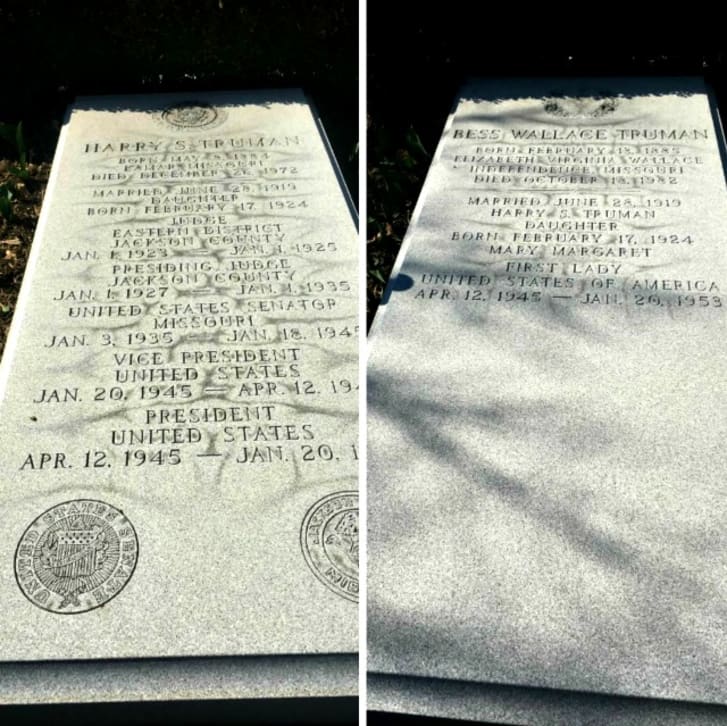 HARRY S. TRUMAN
BORN MAY 8, 1884
LAMAR, MISSOURI
DIED DECEMBER 26, 1972
MARRIED JUNE 28, 1919
DAUGHTER
BORN FEBRUARY 17, 1924
JUDGE
EASTERN DISTRICT
JACKSON COUNTY
JAN. 1, 1923 — JAN. 1, 1925
PRESIDING JUDGE
JACKSON COUNTY
JAN. 1, 1927 — JAN. 1, 1935
UNITED STATES SENATOR
MISSOURI
JAN. 3, 1935 — JAN. 18, 1945
VICE PRESIDENT
UNITED STATES
JAN. 20, 1945 — APR. 12, 194
PRESIDENT
UNITED STATES
APR. 12, 1945 — JAN. 20, 1
UNITED STATES SENATE
BESS WALLACE TRUMAN
BORN FEBRUARY 13, 1885
ELIZABETH VIRGINIA WALLACE
INDEPENDENCE, MISSOURI
DIED OCTOBER 18, 1982
MARRIED JUNE 28, 1919
HARRY S. TRUMAN
DAUGHTER
BORN FEBRUARY 17, 1924
MARY MARGARET
FIRST LADY
UNITED STATES OF AMERICA
APR. 12, 1945 — JAN. 20, 1953